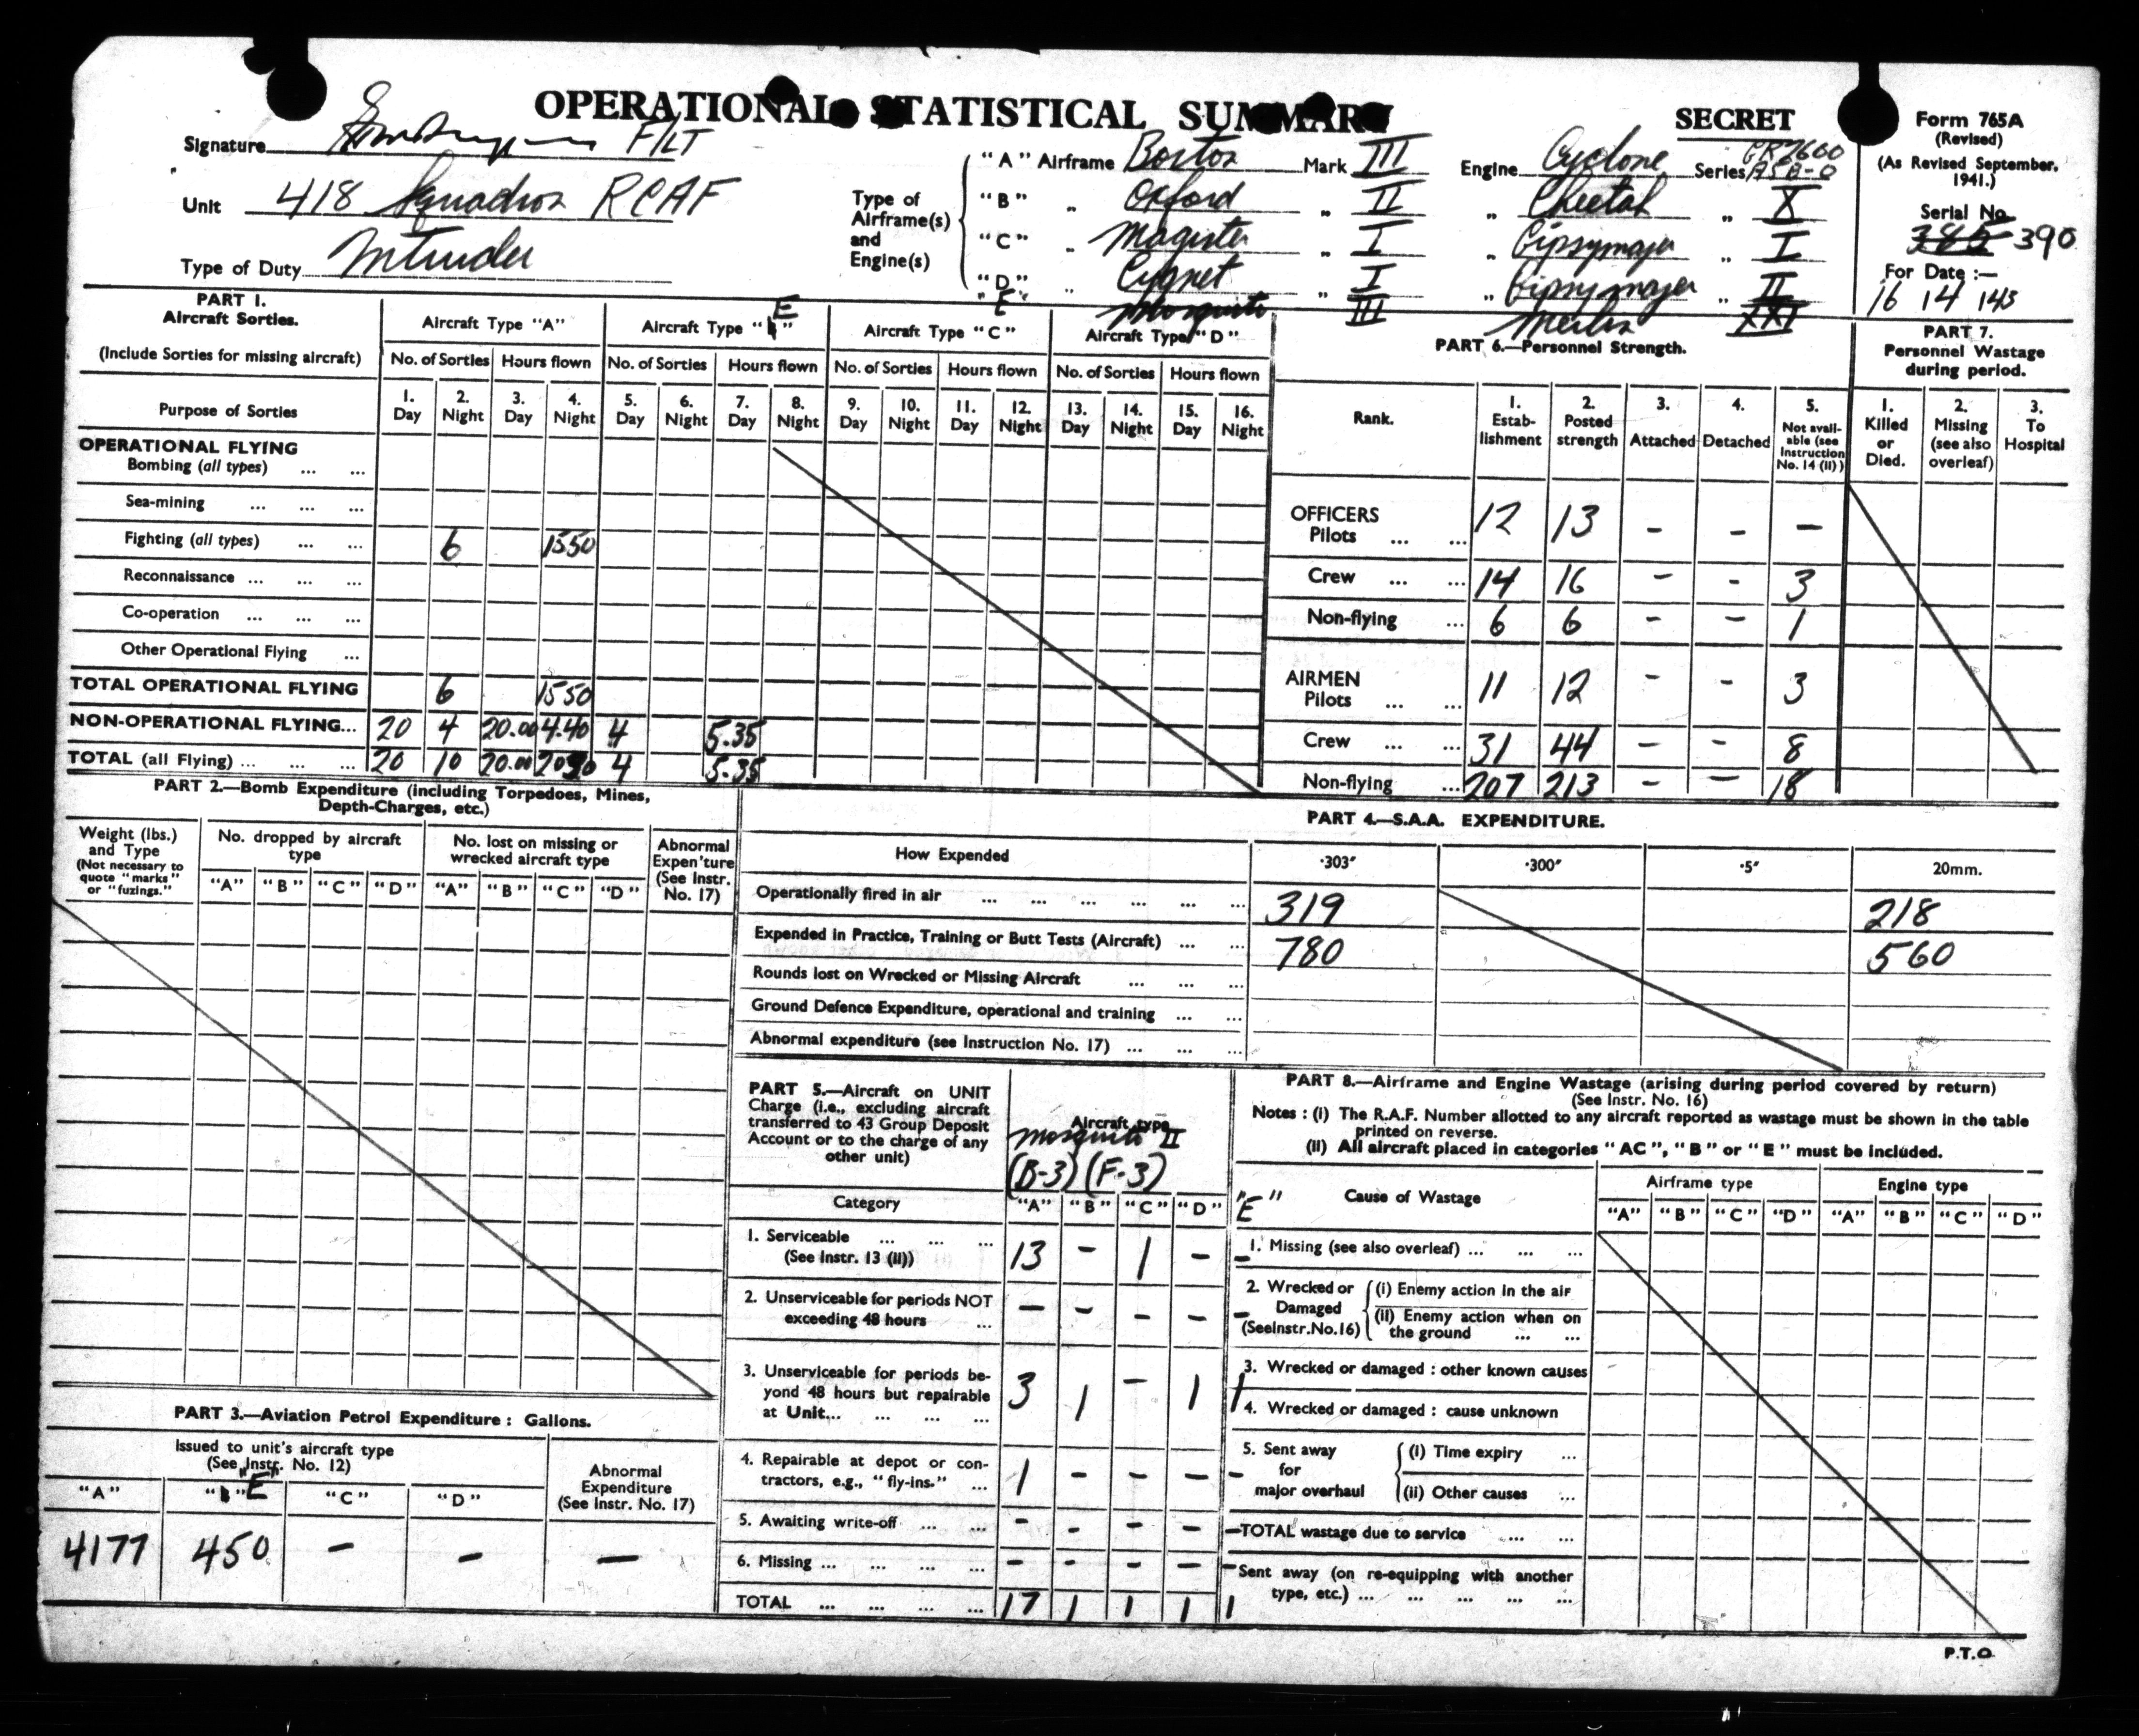 OPERATIONAL STATISTICAL SUMMARY
SECRET
Form 765A
(Revised)
(As Revised September, 1941.)
Serial No.
385 390
For Date :—
16 14 143
Signature F/LT
Unit 418 Squadron RCAF
Type of Duty Intruder
Type of Airframe(s) and Engine(s)
"A" Airframe Boston Mark III Engine Cyclone Series GR2600 A5B-0
"B" „ Oxford „ II „ Cheetah „ X
"C" „ Magister „ I „ Gipsymajor „ I
"D" „ Cygnet „ I „ Gipsymajor „ II
"E" Mosquito III Merlin XXI
PART 1.
Aircraft Sorties.
(Include Sorties for missing aircraft)
Aircraft Type "A" Aircraft Type "E" Aircraft Type "C" Aircraft Type "D"
No. of Sorties Hours flown No. of Sorties Hours flown No. of Sorties Hours flown No. of Sorties Hours flown
Purpose of Sorties
1. Day 2. Night 3. Day 4. Night 5. Day 6. Night 7. Day 8. Night 9. Day 10. Night 11. Day 12. Night 13. Day 14. Night 15. Day 16. Night
OPERATIONAL FLYING
Bombing (all types) ... ...
Sea-mining ... ... ...
Fighting (all types) ... ... 6 1550
Reconnaissance ... ... ...
Co-operation ... ... ...
Other Operational Flying ...
TOTAL OPERATIONAL FLYING 6 1550
NON-OPERATIONAL FLYING... 20 4 20.00 4.40 4 5.35
TOTAL (all Flying) ... ... ... 20 10 20.00 2030 4 5.35
PART 6.—Personnel Strength.
Rank.
1. Estab-lishment 2. Posted strength 3. Attached 4. Detached 5. Not avail-able (see Instruction No. 14 (ii))
OFFICERS
Pilots ... ... 12 13 - - -
Crew ... ... 14 16 - - 3
Non-flying ... 6 6 - - 1
AIRMEN
Pilots ... ... 11 12 - - 3
Crew ... ... 31 44 - - 8
Non-flying ... 207 213 - - 18
PART 7.
Personnel Wastage during period.
1. Killed or Died. 2. Missing (see also overleaf) 3. To Hospital
PART 2.—Bomb Expenditure (including Torpedoes, Mines,
Depth-Charges, etc.)
Weight (lbs.) and Type (Not necessary to quote "marks" or "fuzings."
No. dropped by aircraft type
No. lost on missing or wrecked aircraft type
Abnormal Expen'ture (See Instr. No. 17)
"A" "B" "C" "D" "A" "B" "C" "D"
PART 4.—S.A.A. EXPENDITURE.
How Expended ·303" ·300" ·5" 20mm.
Operationally fired in air ... ... ... ... ... ... 319 218
Expended in Practice, Training or Butt Tests (Aircraft) ... ... 780 560
Rounds lost on Wrecked or Missing Aircraft ... ... ...
Ground Defence Expenditure, operational and training ... ...
Abnormal expenditure (see Instruction No. 17) ... ... ...
PART 5.—Aircraft on UNIT
Charge (i.e., excluding aircraft
transferred to 43 Group Deposit
Account or to the charge of any
other unit)
Aircraft type
Mosquito II
(B-3) (F-3)
Category "A" "B" "C" "D" "E"
1. Serviceable ... ... ...
(See Instr. 13 (ii)) 13 - 1 - -
2. Unserviceable for periods NOT
exceeding 48 hours ... - - - - -
3. Unserviceable for periods be-
yond 48 hours but repairable
at Unit... ... ... ... 3 1 - 1 1
4. Repairable at depot or con-
tractors, e.g., "fly-ins." ... 1 - - - -
5. Awaiting write-off ... ... - - - - -
6. Missing ... ... ... ... - - - - -
TOTAL ... ... ... ... 17 1 1 1 1
PART 8.—Airframe and Engine Wastage (arising during period covered by return)
(See Instr. No. 16)
Notes : (i) The R.A.F. Number allotted to any aircraft reported as wastage must be shown in the table
printed on reverse.
(ii) All aircraft placed in categories "AC", "B" or "E" must be included.
Cause of Wastage Airframe type Engine type
"A" "B" "C" "D" "A" "B" "C" "D"
1. Missing (see also overleaf) ... ... ...
2. Wrecked or Damaged (SeeInstr.No.16)
(i) Enemy action in the air
(ii) Enemy action when on the ground ... ...
3. Wrecked or damaged : other known causes
4. Wrecked or damaged : cause unknown
5. Sent away for major overhaul
(i) Time expiry ...
(ii) Other causes ...
TOTAL wastage due to service ... ...
Sent away (on re-equipping with another
type, etc.) ... ... ... ... ...
PART 3.—Aviation Petrol Expenditure : Gallons.
Issued to unit's aircraft type
(See Instr. No. 12)
Abnormal Expenditure (See Instr. No. 17)
"A" "E" "C" "D"
4177 450 - - -
P.T.O.